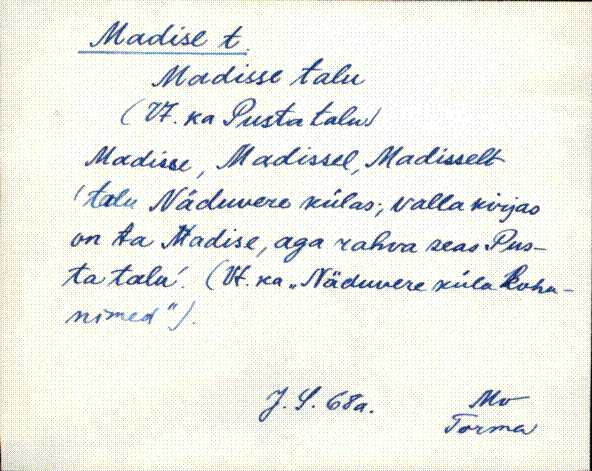 Madise t.
Madisse talu
(Vt. ka Pusta talu)
Madisse, Madissel, Madisselt
'talu Näduvere külas; valla kirjas
on ta Madise, aga rahva seas Pus-
ta talu'. (Vt. ka „Näduvere küla koha-
nimed").
J. S. 68a. Mv
Torma